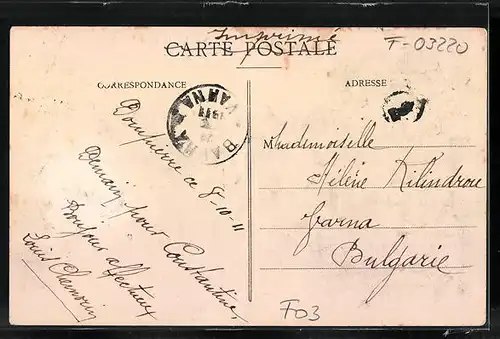 Imprimé
F-03220
CARTE POSTALE
CORRESPONDANCE
ADRESSE
VARNA
Dompierre ce 8-10-11
Demain pour Constantine,
Bonjour affectueux
Louis
Mademoiselle
Hélène Kilindrou
Varna
Bulgarie
F03